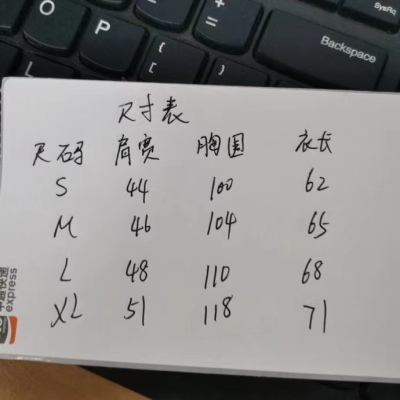 O
P
Backspace
SysRq
L
尺寸表
尺码 肩宽 胸围 衣长
S 44 100 62
M 46 104 65
L 48 110 68
XL 51 118 71
express